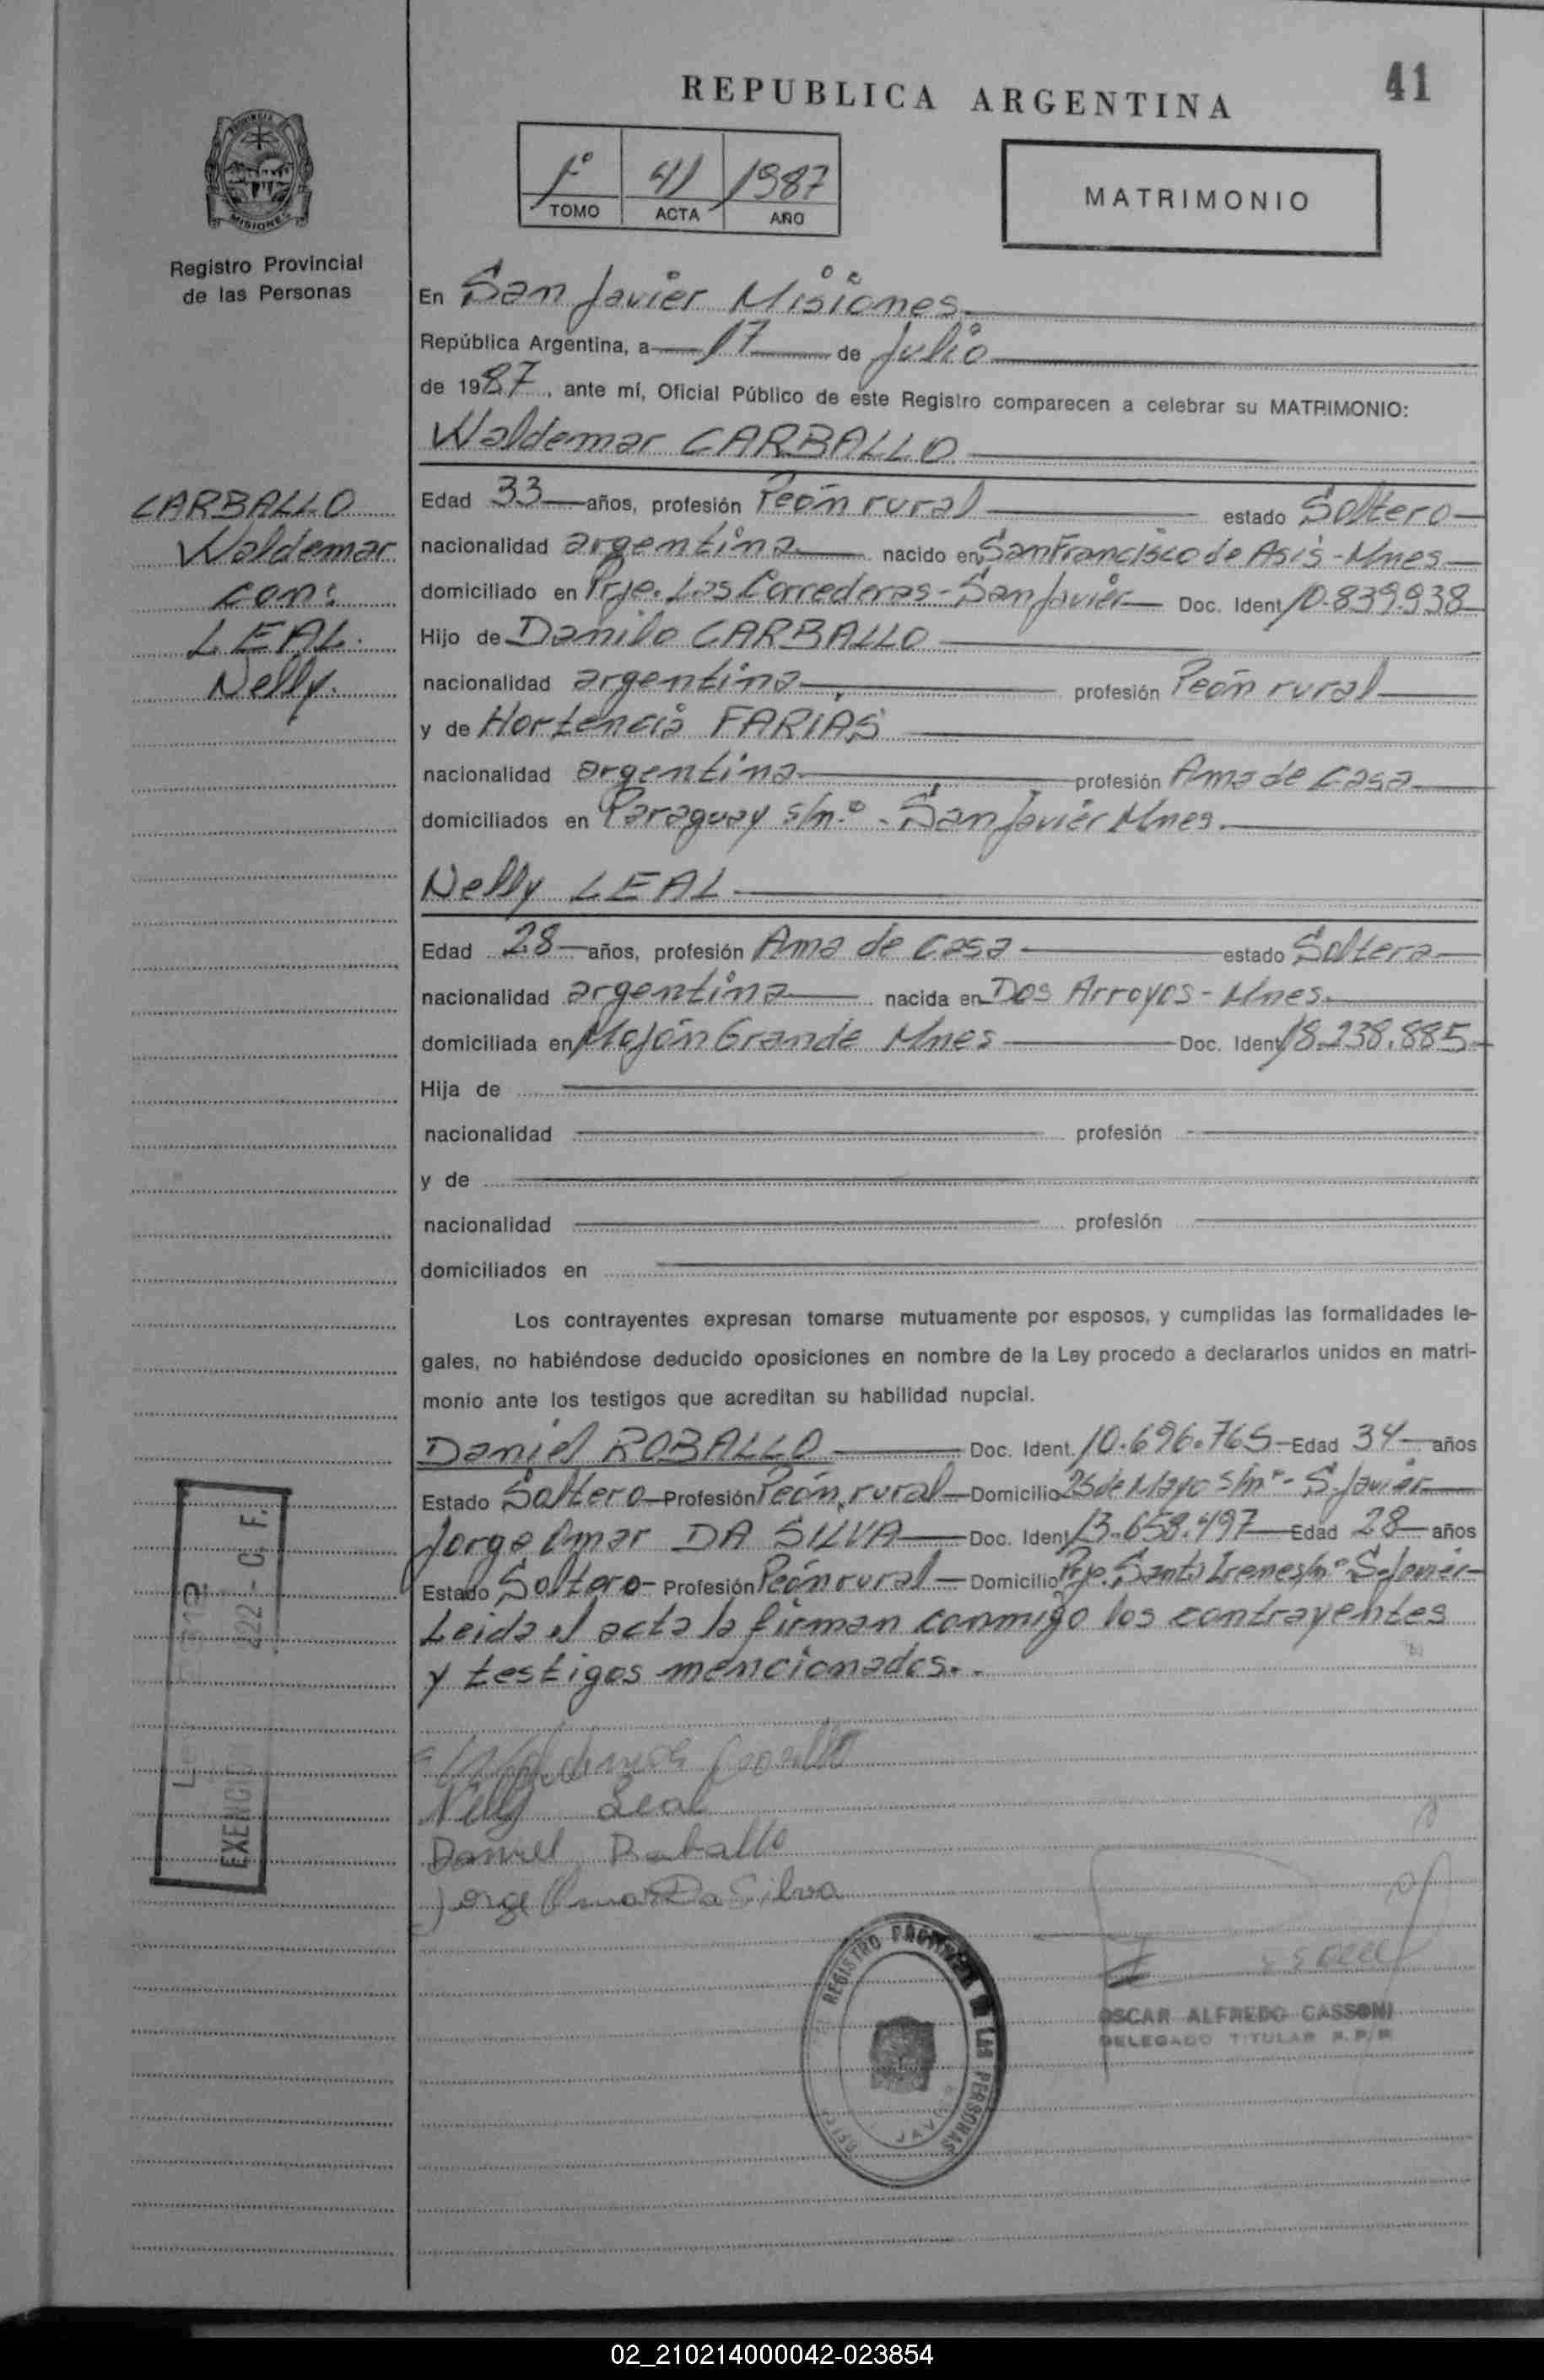 REPUBLICA ARGENTINA
41
1º 41 1987
TOMO ACTA AÑO
MATRIMONIO
PROVINCIA
MISIONES
Registro Provincial
de las Personas
En San Javier Misiones
República Argentina, a 17 de Julio
de 1987, ante mí, Oficial Público de este Registro comparecen a celebrar su MATRIMONIO:
Waldemar CARBALLO
CARBALLO
Waldemar
con:
LEAL
Nelly.
Edad 33 años, profesión Peón rural estado Soltero
nacionalidad argentina nacido en San Francisco de Asis - Mnes
domiciliado en Prje. Las Correderas - San Javier Doc. Ident. 10.839.938
Hijo de Danilo CARBALLO
nacionalidad argentina profesión Peón rural
y de Hortencia FARIAS
nacionalidad argentina profesión Ama de Casa
domiciliados en Paraguay s/nº - San Javier Mnes.
Nelly LEAL
Edad 28 años, profesión Ama de Casa estado Soltera
nacionalidad argentina nacida en Dos Arroyos - Mnes.
domiciliada en Mojón Grande Mnes Doc. Ident. 18.238.885
Hija de
nacionalidad profesión
y de
nacionalidad profesión
domiciliados en
Los contrayentes expresan tomarse mutuamente por esposos, y cumplidas las formalidades le-
gales, no habiéndose deducido oposiciones en nombre de la Ley procedo a declararlos unidos en matri-
monio ante los testigos que acreditan su habilidad nupcial.
Daniel ROBALLO Doc. Ident. 10.696.765 Edad 34 años
Estado Soltero Profesión Peón rural Domicilio 25 de Mayo s/nº - S. Javier
Jorge Omar DA SILVA Doc. Ident. 13.658.497 Edad 28 años
Estado Soltero - Profesión Peón rural Domicilio Prje. Santa Irene s/nº S. Javier
Leida el acta la firman conmigo los contrayentes
y testigos mencionados.
222 - C. F.
Waldemar Carballo
Nelly Leal
Daniel Roballo
Jorge Omar Da Silva
REGISTRO PROVINCIAL DE LAS PERSONAS
OSCAR ALFREDO CASSONI
DELEGADO TITULAR R.P.P.
02_210214000042-023854